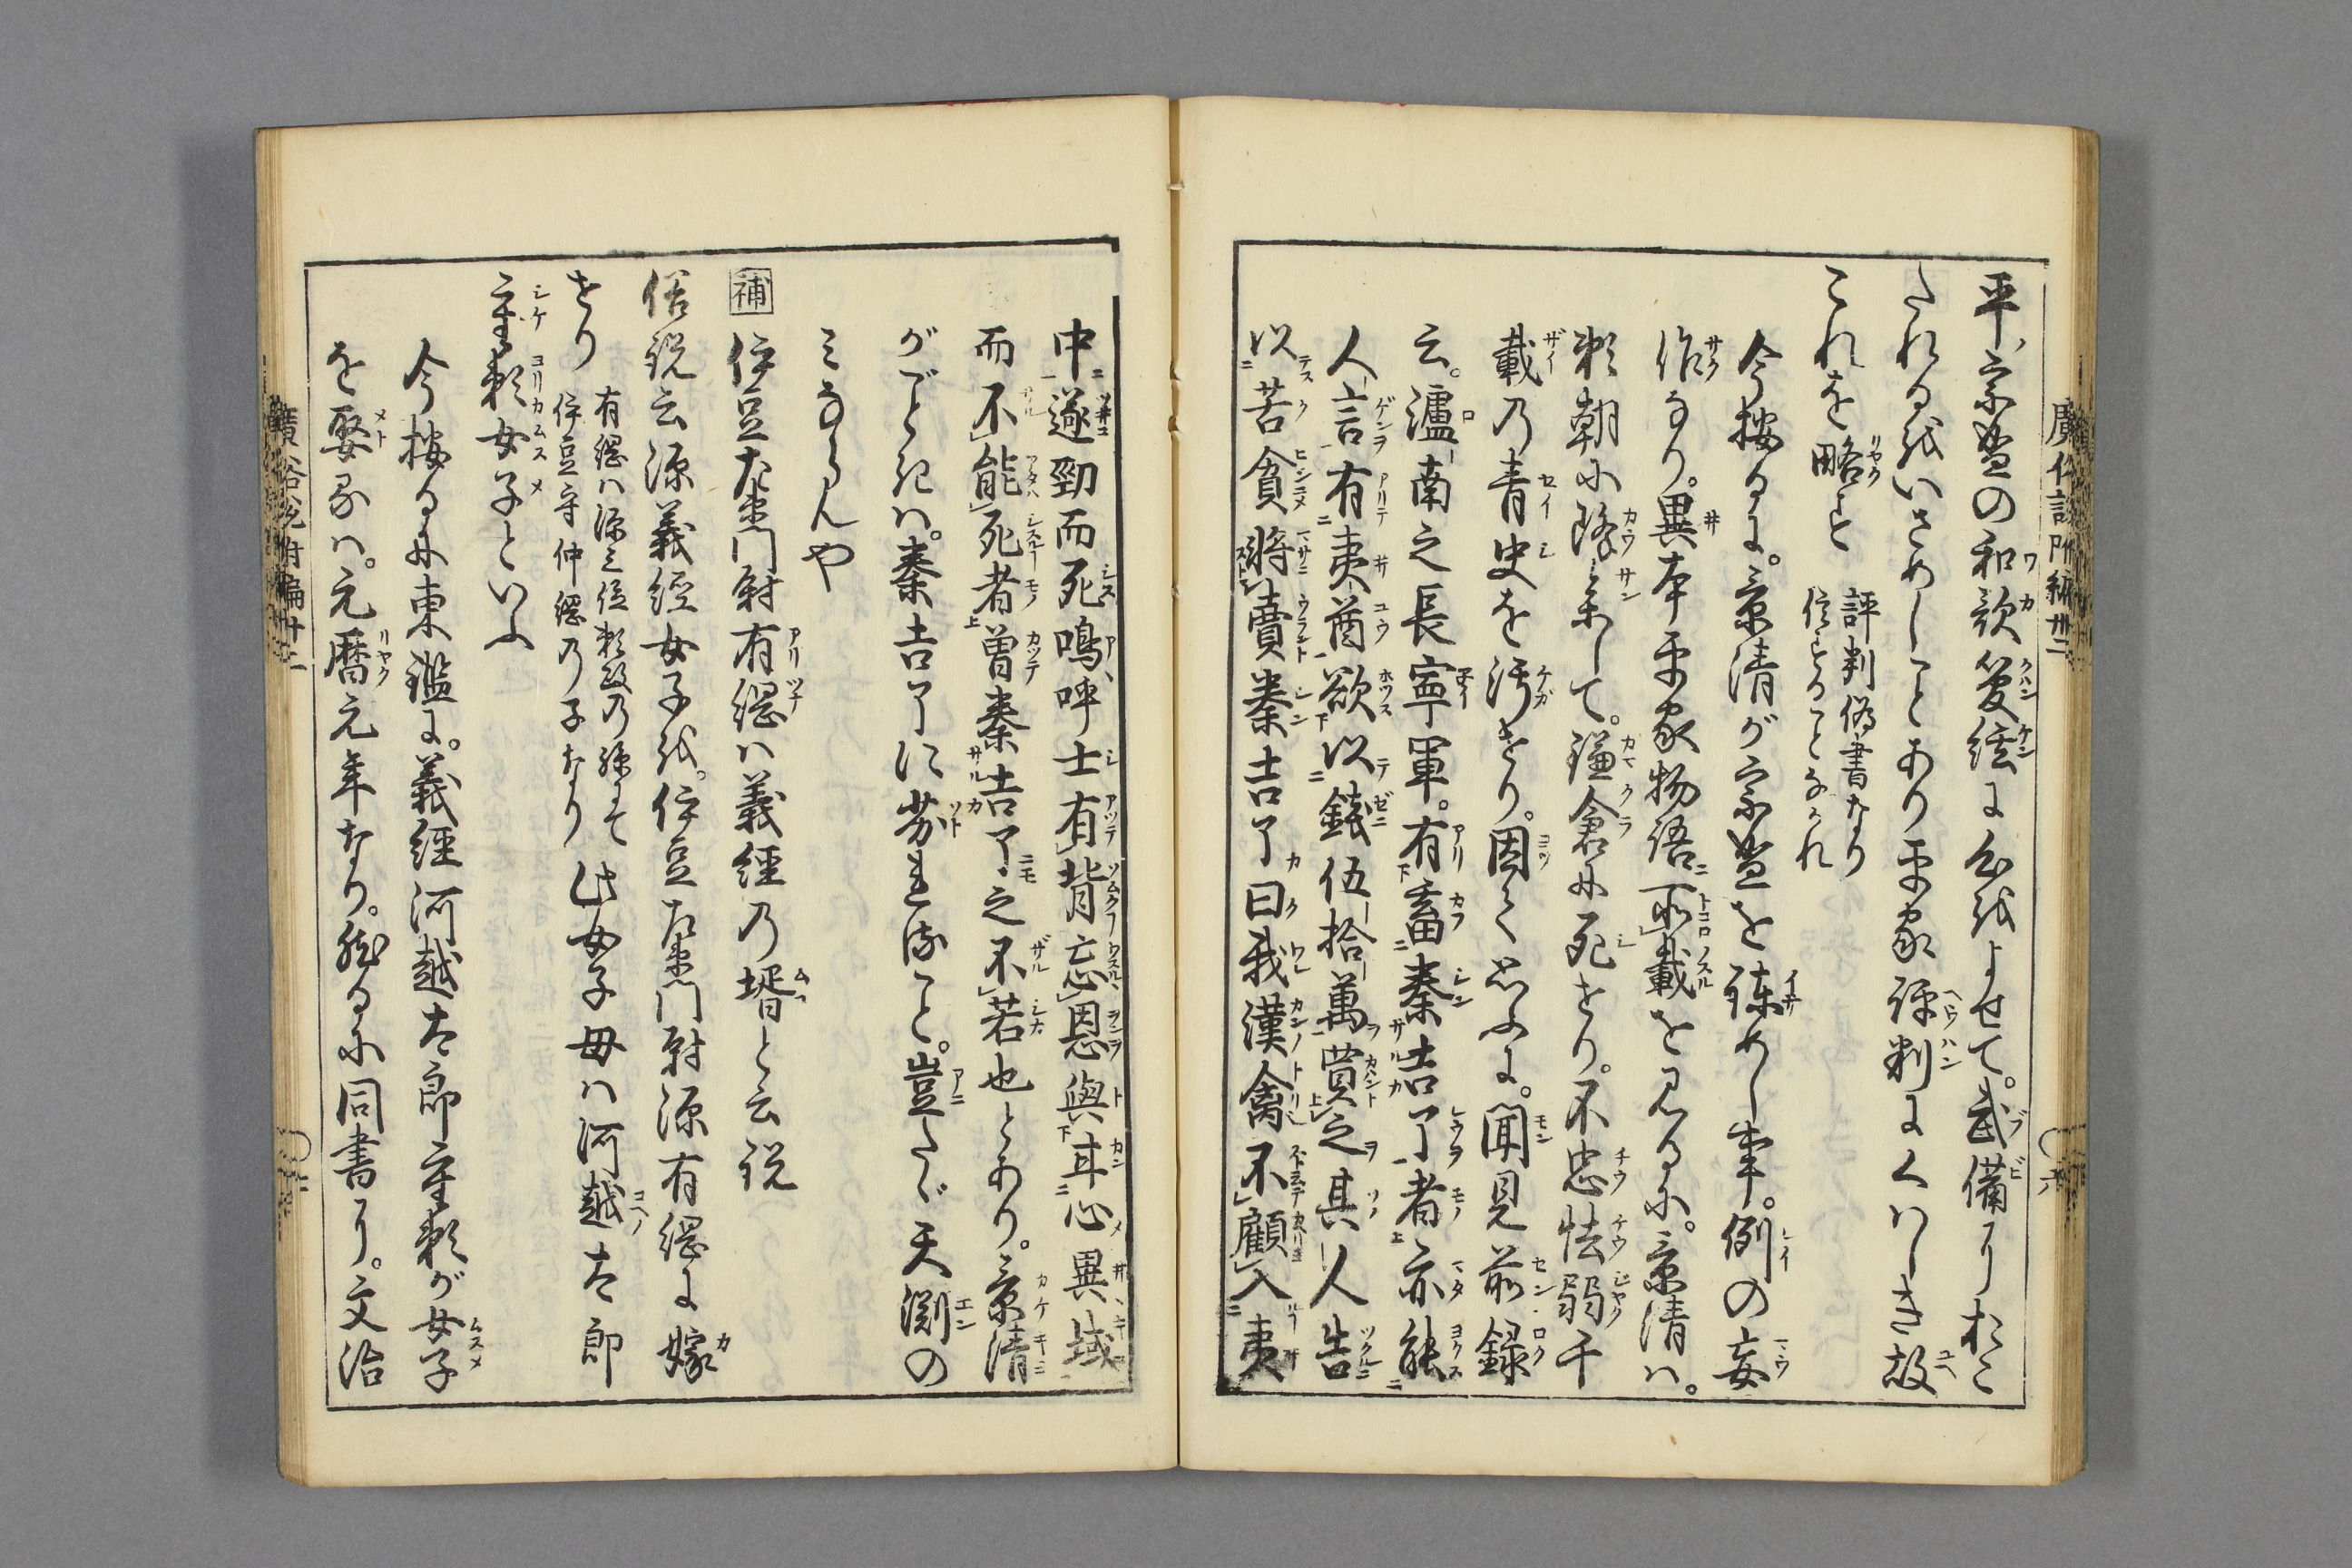 平宗盛の和歌管絃に心をよせて。武備におこ
たれるをいさめしことあり平家評判にくはしき故
これを略す
評判偽書なり
信ずることなかれ
今按るに。景清が宗盛を諫めし事。例の妄
作なり。異本平家物語所載を見るに。景清は。
頼朝に降参して。鎌倉に死せり。不忠怯弱千
載の青史を汚せり。因て思ふに。聞見前録
云。瀘南之長寧軍。有畜秦吉了者亦能
人言有夷酋欲以錢伍拾萬買之其人告
以苦貧將賣秦吉了曰我漢禽不顧入夷
中遂勁而死嗚呼士有背忘恩與甘心異域
而不能死者曽秦吉了之不若也とあり。景清
がごときは。秦吉了に劣れること。豈たゞ天淵の
みならんや
補 伊豆左衛門尉有綱ハ義經乃壻と云説
俗説云源義經女子を。伊豆左衛門尉源有綱に嫁
せり
有綱ハ源三位頼政乃孫にて
伊豆守仲綱乃子なり
此女子母ハ河越太郎
重頼女子といふ
今按るに東鑑に。義經河越太郎重頼が女子
を娶るハ。元暦元年なり。然るに同書に。文治
廣俗説附編卅二